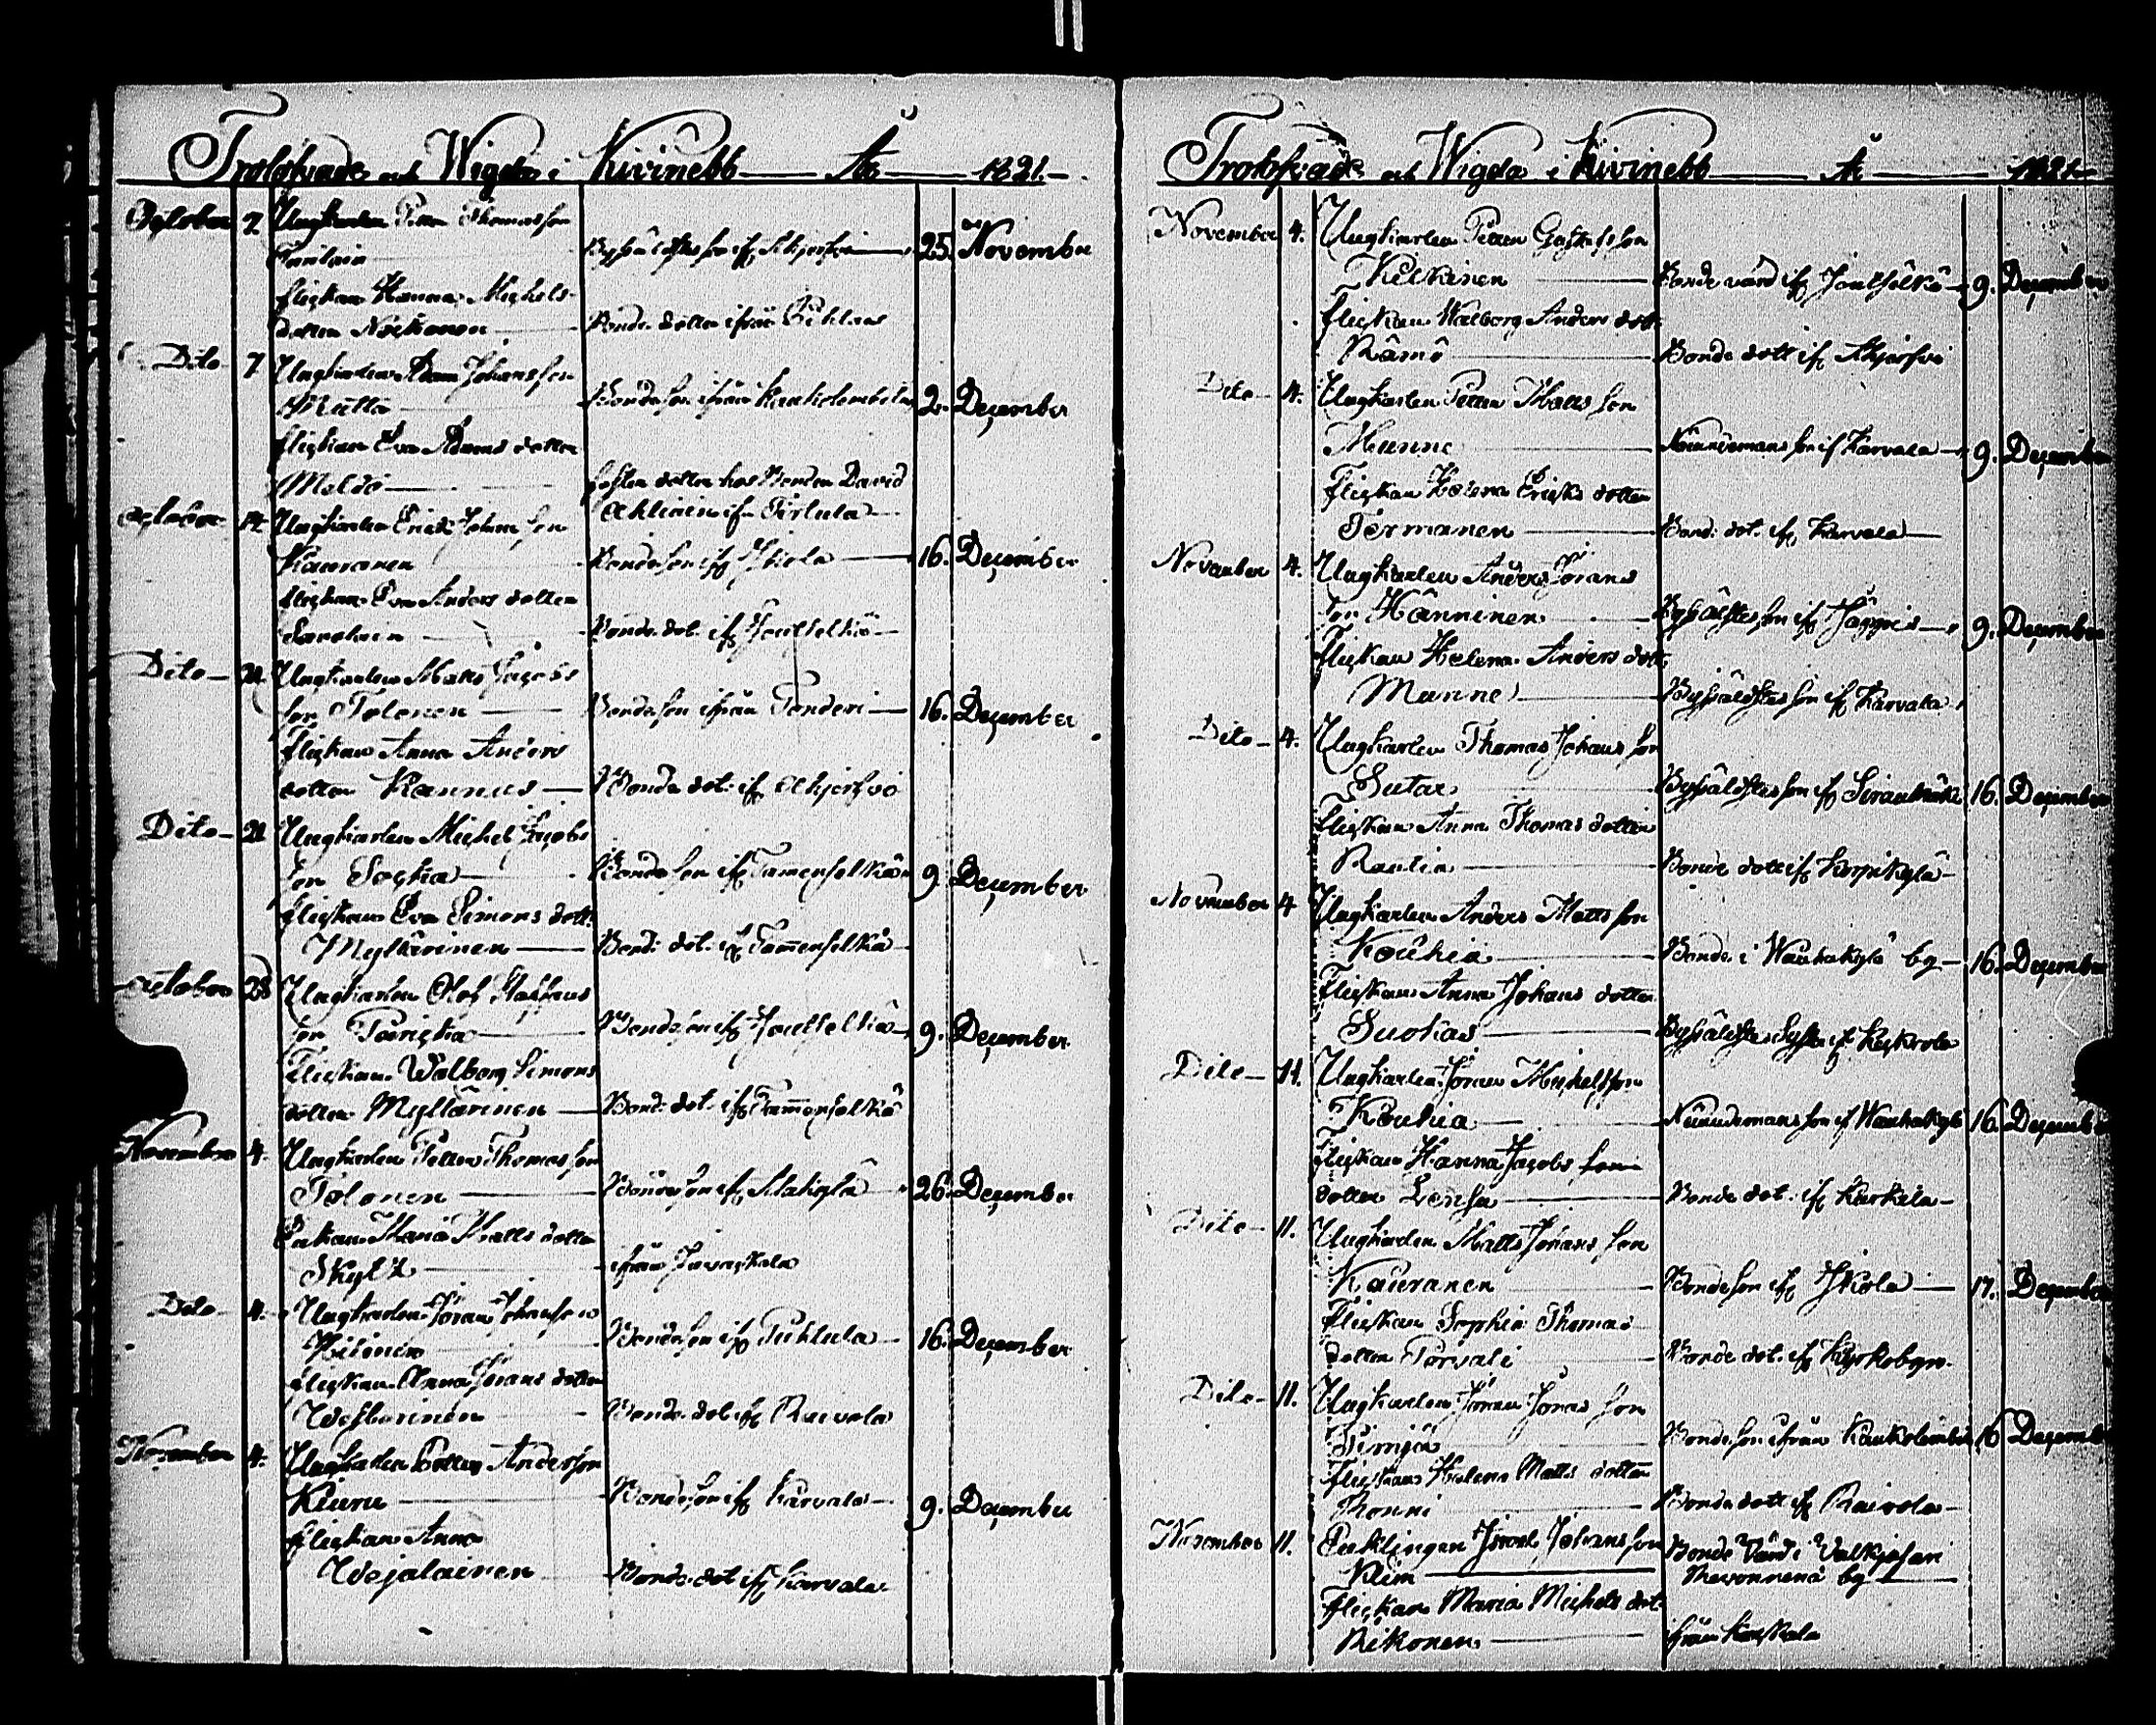 Trolofvade och Wigda i Kivinebb År 1821.
October 7 Ungkarlen Petter Thomasson
Byssäldstes son ifr 25. November
flickan Hanna Michels
dotter Bonde dotter ifrån
Dito 7 Ungkarlen Adam Johansson
Multa Bondeson ifrån Kaukolembala 2. December
flickan Eva Adams dotter
foster dotter hos Bonden David
ifr Pirlula
October 14. Ungkarlen Erick Johansson
Kauranen Bondeson ifr Ikola 16. December
flickan Eva Anders dotter
Savolain Bonde dot. ifr Joutselkä
Dito 21. Ungkarlen Matts Jacobs
son Tolonen Bondeson ifrån Ponderi 16. December
flickan Anna Anders
dotter Kannus Bonde dot. ifr
Dito 21 Ungkarlen Michel Jacobs
son Bondeson ifr Tammenselkä 9 December
flickan Eva Simons dott.
Myllärinen Bonde dot. ifr Tammenselkä
October 28 Ungkarlen Olof Staffans
son Bondeson ifr Joutselkä 9. December
Flickan Walborg Simons
dotter Myllärinen Bonde dot. ifr Tammenselkä
November 4. Ungkarlen Petter Thomasson
Tolonen Bondeson ifr 26. December
Enkan Maria Matts dotter
Skytt ifrån
Dito 4. Ungkarlen Jöran Johansson
Bondeson ifr Puhlula 16. December
flickan Anna Jörans dotter
Westerinen Bonde dot. ifr Raivola
November 4. Ungkarlen Petter Andersson
Kiuru Bondeson ifr Karvala 9. December
flickan Anna
Wejalainen Bonde dot ifr Karvala
Trolofvade och Wigda i Kivinebb År 1821
November 4. Ungkarlen Petter Gustafsson
Kelkinen Bonde värd ifr Joutselkä 9. December
flickan Walborg Anders dott.
Rämö Bonde dott ifr
Dito 4. Ungkarlen Petter Mattsson
Manne Nämndemans son if Karvala 9. December
Flickan Helena Ericks dotter
Termanen Bond. dot. ifr Karvala
November 4. Ungkarlen Anders Jörans
son Hänninen Byssäldstes son ifr Jäppis 9. December
flickan Helena Anders dott.
Manne Byssäldstes son ifr Karvala
Dito 4. Ungkarlen Thomas Johans son
Sutar Byssäldstes son ifr 16. December
flickan Anna Thomas dotter
Rautia Bonde dott ifr Korpikylä
November 4 Ungkarlen Anders Matts son
Kouhia Bonde i Wauhakylä by 16. December
flickan Anna Johans dotter
Suokas Byssäldstes Syster ifr Keskrola
Dito 11. Ungkarlen Jöran Michelsson
Kouhia Nämndemans son if Wauhakylä 16. December
flickan Hanna Jacobs
dotter Lensu Bonde dot. ifr Karkela
Dito 11. Ungkarlen Matts Johans son
Kauranen Bondeson ifr Ikola 17. December
Flickan Sophia Thomas
dotter Parvali Bonde dot. ifr Kyrkobyn.
Dito 11. Ungkarlen Jöran Jörans son
Bondeson ifrån Kaukolembala 16 December
flickan Helena Matts dotter
Thonni Bonde dott ifr Raivola
November 11. Enklingen Johansson Bonde Värd i Valkjasari
Klim by
flickan Maria Michels dot.
Rikonen ifrån